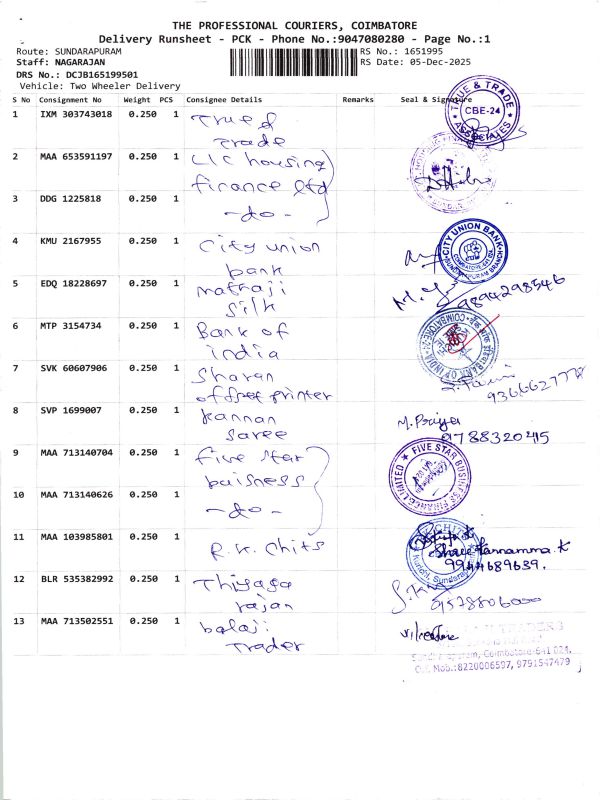 THE PROFESSIONAL COURIERS, COIMBATORE
Delivery Runsheet - PCK - Phone No.:9047080280 - Page No.:1
Route: SUNDARAPURAM RS No.: 1651995
Staff: NAGARAJAN RS Date: 05-Dec-2025
DRS No.: DCJB165199501
Vehicle: Two Wheeler Delivery
S No Consignment No Weight PCS Consignee Details Remarks Seal & Signature
1 IXM 303743018 0.250 1 True & Trade TRUE & TRADE ASSOCIATES CBE-24
2 MAA 653591197 0.250 1 LIC housing finance ltd
3 DDG 1225818 0.250 1 -do-
4 KMU 2167955 0.250 1 City union bank CITY UNION BANK
5 EDQ 18228697 0.250 1 natraji silk 9894298546
6 MTP 3154734 0.250 1 Bank of india BANK OF INDIA COIMBATORE
7 SVK 60607906 0.250 1 Sharan offset printer
8 SVP 1699007 0.250 1 kannan saree M. Priya
9 MAA 713140704 0.250 1 five star buisness FIVE STAR BUSINESS FINANCE LIMITED
10 MAA 713140626 0.250 1 -do-
11 MAA 103985801 0.250 1 R.K. Chits CHITS Kurichi, Sundarapuram 9944689639.
12 BLR 535382992 0.250 1 Thiyaga rajan
13 MAA 713502551 0.250 1 balaji Trader TRADERS
Sundarapuram, Coimbatore-641 024.
Cell Mob.:8220006597, 9791547479